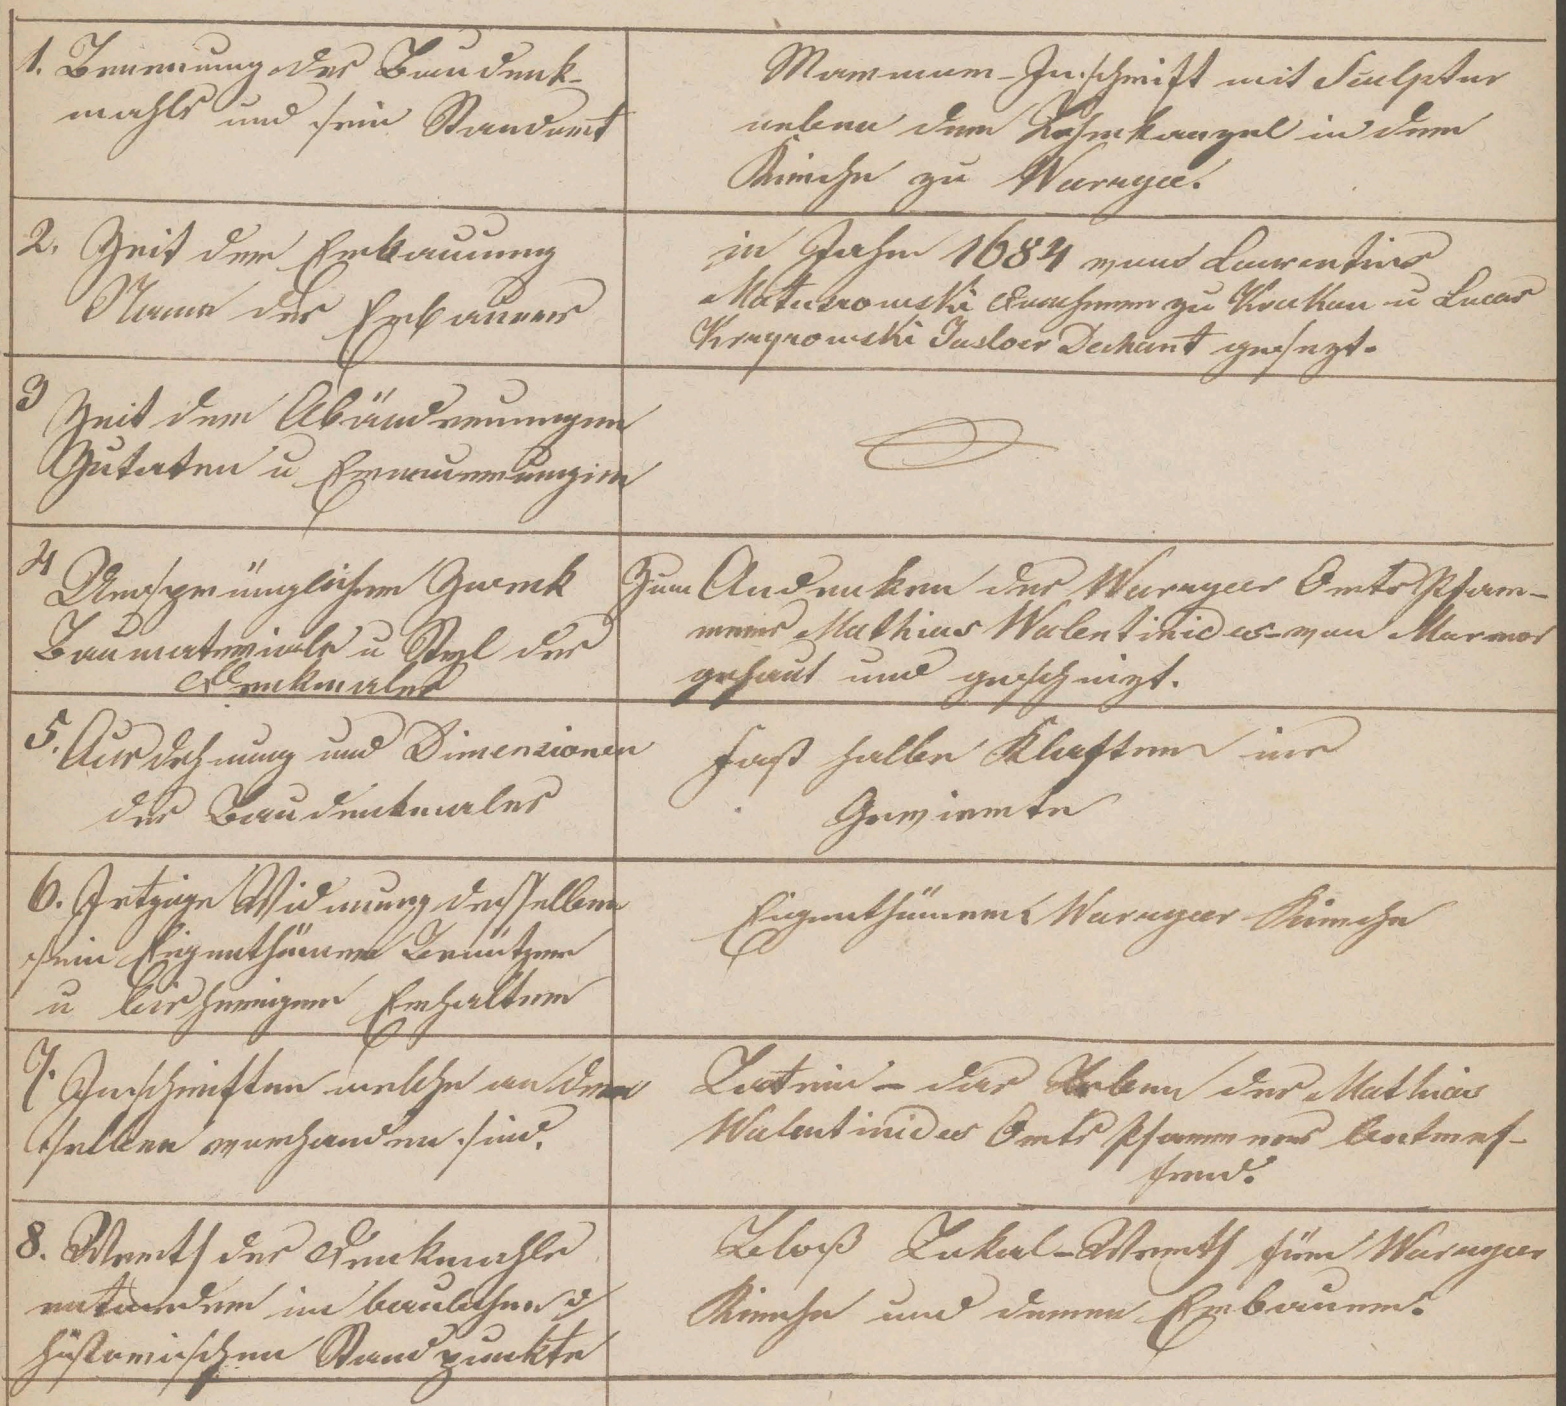 1. Benennung des Baudenk-
mahls und sein Standort
Marmum-Inschrift mit Sculptur
neben dem Lehrkanzel in der
Kirche zu Warzyce.
2. Zeit der Erbauung
Name des Erbauers
in Jahr 1684 von Laurentius
Matusrowski zu Krakau u Lucas
Krzyrowski Jasloer Dechant gesezt.
3 Zeit der Abändrrungen
Zutaten u Erneuerungen
4 Ursprünglicher Zweck
Baumateriale u Styl des
Denkmales
Zum Andenken des Warzycer Orts Pfar-
rers Mathias Walentinides von Marmor
gehaut und geschnizt.
5. Ausdehnung und Dimensionen
des Baudenkmales
fast halbe Klafter ins
Gevierte
6. Jetzige Widmung desselben
sein Eigenthümer Benützer
u bisheriger Erhalter
Eigenthümer Warzycer Kirche
7. Inschriften welche an dem
selben vorhanden sind.
Latein - das Leben des Mathias
Walentinides Orts Pfarrers betref-
fend.
8. Werth des Denkmahls
entweder im baulichen
historischen Standpunkte
Bloß Lokal-Werth für Warzycer
Kirche und deren Erbauer.